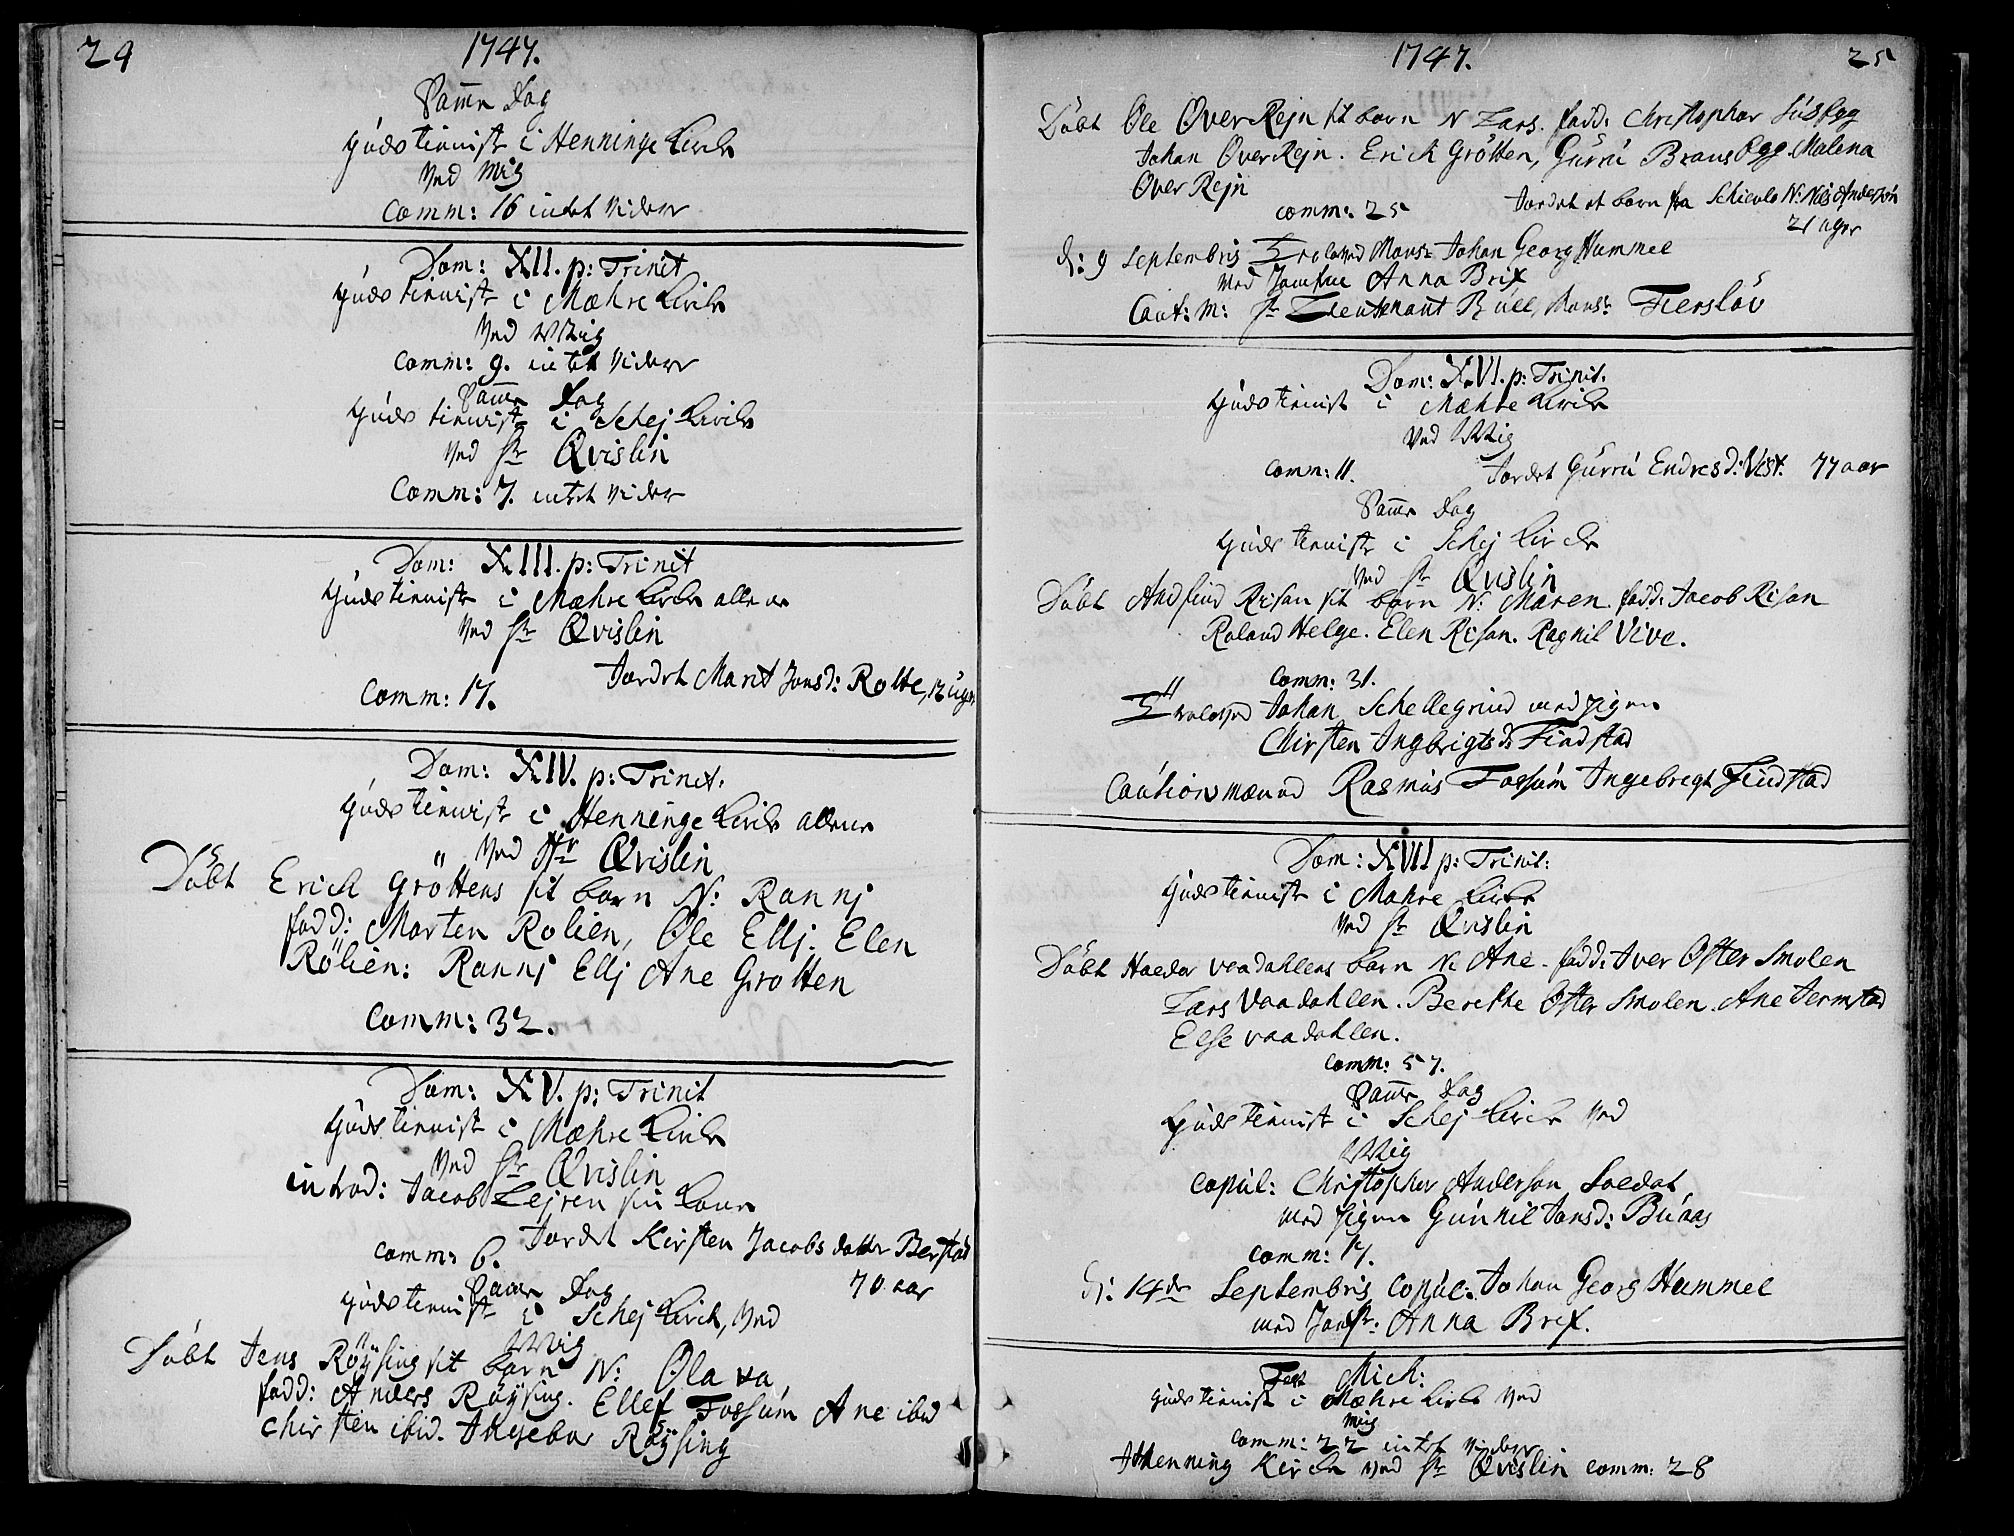 24
1747.
Samme Dag
Guds tieniste i Henninge Kirche
Ved mig
Comm: 16 intet videre
Dom: XII. p: Trinit
Guds tieniste i Mæhre Kirche
Ved Mig
Comm: 9. intet videre
Samme Dag
Guds tieniste i Schej Kirche
Ved Hr Qvislin
Comm: 7. intet videre
Dom: XIII. p: Trinit
Guds tieniste i Mæhre Kirche allene
Ved Hr Qvislin
Jordet Marit Jonsd: Rolte, 12 uger
Comm: 17.
Dom: XIV. p: Trinit.
Guds tieniste i Henninge Kirche allene
Ved Hr Qvislin
Döbt Erich Gröttens sit barn N: Ranni
fadd: Morten Rolien, Ole Ellj. Elen
Rölien: Ranni Ellj Ane Grotten
Comm: 32.
Dom: XV. p: Trinit
Guds tieniste i Mæhre Kirche
Ved Hr Qvislin
introd: Jacob Lejren sin Kone
Jordet Kirsten Jacobs datter Berstad
comm: 6.
70 aar
Samme Dag
Guds tieniste i Schej Kirche, Ved
Mig
Döbt Jens Röysing sit barn N: Olava
fadd: Anders Röysing. Ellef Fossum Ane ibid
Chirsten ibid. Ingebor Röysing
1747.
25
Döbt Ole Over Rejn sit barn N Lars. fadd: Christopher
Johan Over Rejn. Erich Grötten, Gurru Brans Ryg. Malena
Over Rejn
comm: 25
Jordet et barn fra N: Nils Anderssön
21 uger
D: 9 Septembris Troloved Mons: Johan Georg Hummel
Med Jomfrue Anna Brix
Caut: M: Hr Lieutenant Bull, Mons: Fiersløv
Dom: XVI. p: Trinit.
Guds tieniste i Mæhre Kirche
Ved Mig
comm: 11.
Jordet Gurru Endresd: Vist. 77 aar
Samme Dag
Guds tieniste i Schej Kirche
Ved Hr Qvislin
Döbt Andfind Risan sit barn N: Maren. fadd: Jacob Risan
Roland Helge. Elen Risan. Ragnil Vive.
Comm: 31.
Trolofved Johan Schellegrind med pigen
Chirsten Ingbrigtsd: Findstad
Cautionsmænd Rasmus Fossum Ingebregt Findstad
Dom: XVII p: Trinit:
Guds tieniste i Mæhre Kirche
Ved Hr Qvislin
Döbt Haldor Vaadahlens barn N: Ane. fadd: Iver Öfter Smolen
Lars Vaadahlen. Berethe Öfter Smolen. Ane Jermstad
Else Vaadahlen.
Comm: 57.
Samme Dag
Guds tieniste i Schej Kirche Ved
Mig
Copul: Christopher Anderson Soldat
med pigen Gunnil Jonsd: Bunas
Comm: 17.
D: 14de Septembris Copul. Johan Georg Hummel
med Jomfr: Anna Brix.
Fest Mich:
Guds tieniste i Mæhre Kirche Ved
mig
comm: 22 intet videre
I Henning Kirche Ved Hr Qvislin comm: 28